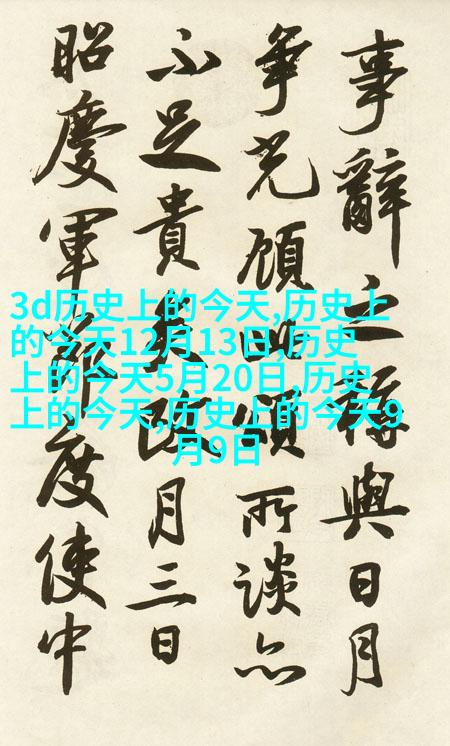 事辭之稱與日月
争光顧此頌所談亦
不足貴月三日
昭慶軍節度使中
3d历史上的今天,历史上
的今天12月13日,历史
上的今天5月20日,历史
上的今天,历史上的今天9
月9日